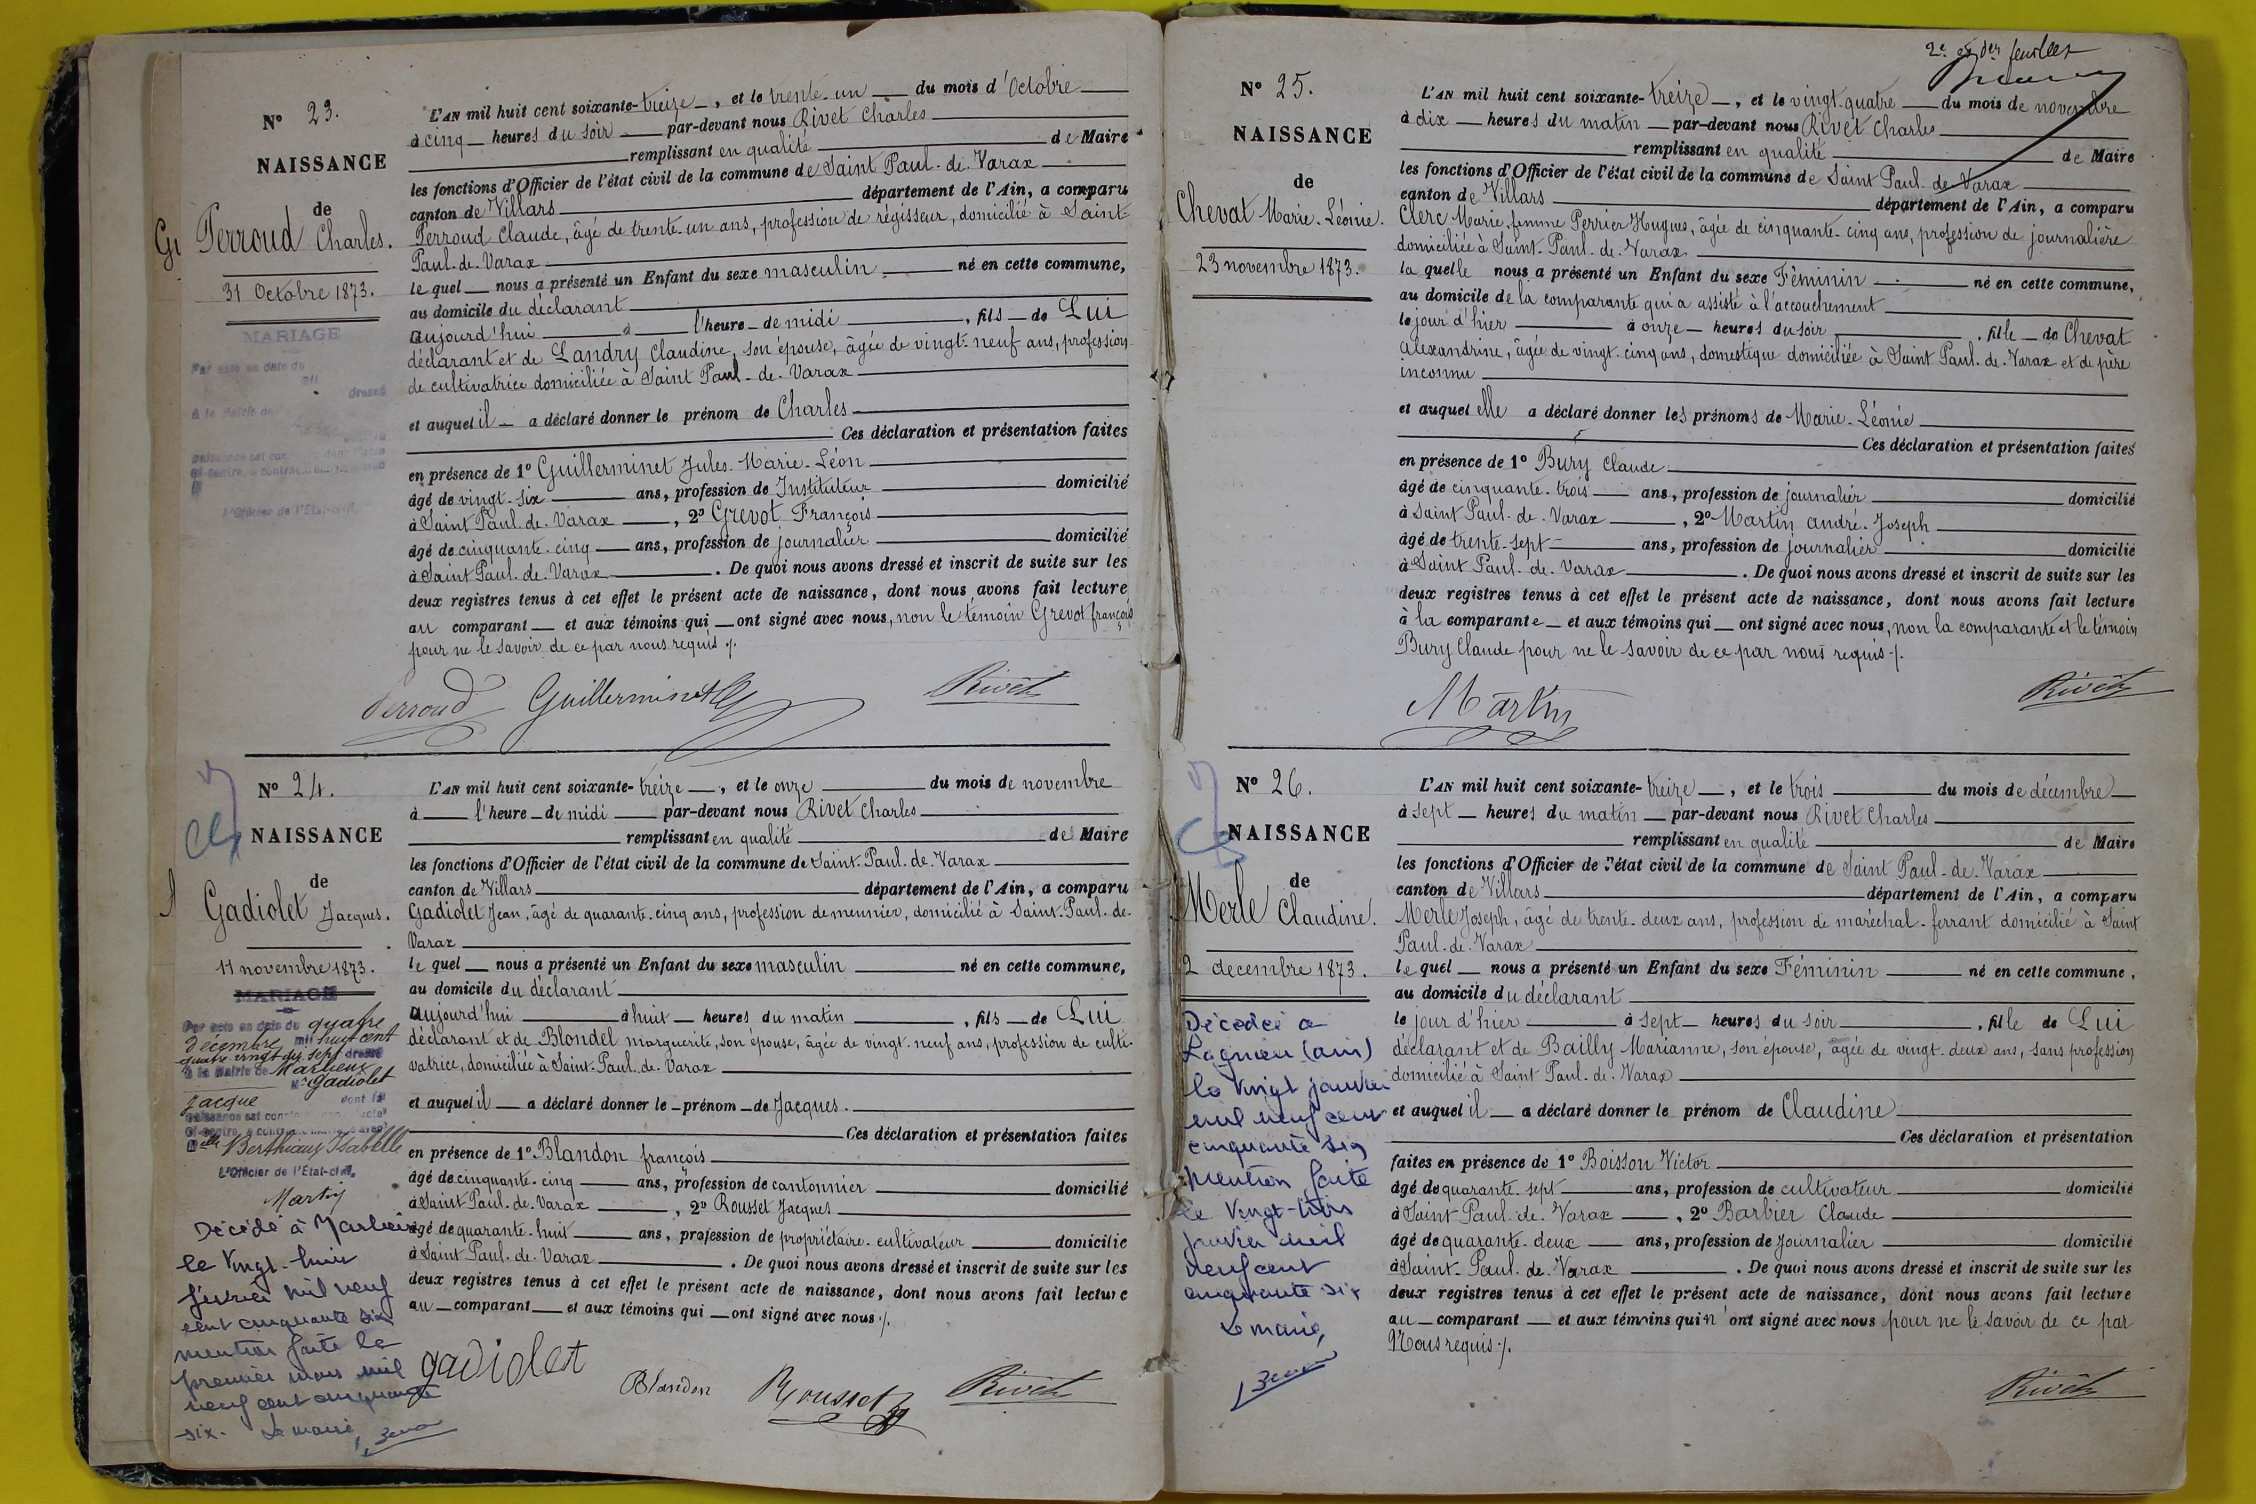 Nº 23.
NAISSANCE
de
Perroud Charles.
31 Octobre 1873.
MARIAGE
L'AN mil huit cent soixante-treize, et le trente-un du mois d'Octobre
à cinq heures du soir par-devant nous Rivet Charles
remplissant en qualité de Maire
les fonctions d'Officier de l'état civil de la commune de Saint Paul-de-Varax
canton de Villars département de l'Ain, a comparu
Perroud Claude, âgé de trente-un ans, profession de régisseur, domicilié à Saint-
Paul-de-Varax
le quel nous a présenté un Enfant du sexe masculin né en cette commune,
au domicile du déclarant
aujourd'hui à l'heure de midi, fils de Lui
déclarant et de Landry Claudine, son épouse, âgée de vingt-neuf ans, profession
de cultivatrice domiciliée à Saint Paul-de-Varax
et auquel il a déclaré donner le prénom de Charles
Ces déclaration et présentation faites
en présence de 1º Guillerminet Jules-Marie-Léon
âgé de vingt-six ans, profession de Instituteur domicilié
à Saint Paul-de-Varax, 2º Grevot François
âgé de cinquante-cinq ans, profession de journalier domicilié
à Saint Paul-de-Varax. De quoi nous avons dressé et inscrit de suite sur les
deux registres tenus à cet effet le présent acte de naissance, dont nous avons fait lecture
au comparant et aux témoins qui ont signé avec nous, non le témoin Grevot françois
pour ne le savoir de ce par nous requis ./.
Perroud Guillerminet Rivet
Nº 24.
NAISSANCE
de
Gadiolet Jacques.
11 novembre 1873.
MARIAGE
Par acte en date du quatre
décembre mil huit cent
quatre vingt dix sept dressé
à la Mairie de Marlieux
Mr Gadiolet
Jacque dont la
Melle Berthiaux Isabelle
L'Officier de l'État-civil,
Martin
Décédé à Marlieux
le vingt-huit
février mil neuf
cent cinquante six
mention faite le
premier mars mil
neuf cent cinquante
six. Le maire,
L'AN mil huit cent soixante-treize, et le onze du mois de novembre
à l'heure de midi par-devant nous Rivet Charles
remplissant en qualité de Maire
les fonctions d'Officier de l'état civil de la commune de Saint-Paul-de-Varax
canton de Villars département de l'Ain, a comparu
Gadiolet Jean, âgé de quarante-cinq ans, profession de meunier, domicilié à Saint-Paul-de-
Varax
le quel nous a présenté un Enfant du sexe masculin né en cette commune,
au domicile du déclarant
aujourd'hui à huit heures du matin, fils de Lui
déclarant et de Blondel marguerite, son épouse, âgée de vingt-neuf ans, profession de culti-
vatrice, domiciliée à Saint-Paul-de-Varax
et auquel il a déclaré donner le prénom de Jacques.
Ces déclaration et présentation faites
en présence de 1º Blandon françois
âgé de cinquante-cinq ans, profession de cantonnier domicilié
à Saint Paul-de-Varax, 2º Rousset Jacques
âgé de quarante-huit ans, profession de propriétaire-cultivateur domicilié
à Saint Paul-de-Varax. De quoi nous avons dressé et inscrit de suite sur les
deux registres tenus à cet effet le présent acte de naissance, dont nous avons fait lecture
au comparant et aux témoins qui ont signé avec nous ./.
gadiolet Blandon Rousset Rivet
2e et der feuillet
Nº 25.
NAISSANCE
de
Chevat Marie-Léonie.
23 novembre 1873.
L'AN mil huit cent soixante-treize, et le vingt-quatre du mois de novembre
à dix heures du matin par-devant nous Rivet Charles
remplissant en qualité de Maire
les fonctions d'Officier de l'état civil de la commune de Saint Paul-de-Varax
canton de Villars département de l'Ain, a comparu
Clerc Marie, femme Perrier Hugues, âgée de cinquante-cinq ans, profession de journalière
domiciliée à Saint-Paul-de-Varax
la quelle nous a présenté un Enfant du sexe Féminin né en cette commune,
au domicile de la comparante qui a assisté à l'accouchement
le jour d'hier à onze heures du soir, fille de Chevat
Alexandrine, âgée de vingt-cinq ans, domestique domiciliée à Saint Paul-de-Varax et de père
inconnu
et auquel elle a déclaré donner les prénoms de Marie-Léonie
Ces déclaration et présentation faites
en présence de 1º Bury Claude
âgé de cinquante-trois ans, profession de journalier domicilié
à Saint Paul-de-Varax, 2º Martin André-Joseph
âgé de trente-sept ans, profession de journalier domicilié
à Saint Paul-de-Varax. De quoi nous avons dressé et inscrit de suite sur les
deux registres tenus à cet effet le présent acte de naissance, dont nous avons fait lecture
à la comparante et aux témoins qui ont signé avec nous, non la comparante et le témoin
Bury Claude pour ne le savoir de ce par nous requis ./.
Martin Rivet
Nº 26.
NAISSANCE
de
Merle Claudine.
2 decembre 1873.
Décédée à
Lagnieu (ain)
le vingt janvier
mil neuf cent
cinquante six
mention faite
le vingt-trois
janvier mil
neuf cent
cinquante six
Le maire,
L'AN mil huit cent soixante-treize, et le trois du mois de décembre
à sept heures du matin par-devant nous Rivet Charles
remplissant en qualité de Maire
les fonctions d'Officier de l'état civil de la commune de Saint Paul-de-Varax
canton de Villars département de l'Ain, a comparu
Merle Joseph, âgé de trente-deux ans, profession de maréchal-ferrant domicilié à Saint
Paul-de-Varax
le quel nous a présenté un Enfant du sexe Féminin né en cette commune,
au domicile du déclarant
le jour d'hier à sept heures du soir, fille de Lui
déclarant et de Bailly Marianne, son épouse, âgée de vingt-deux ans, sans profession
domicilié à Saint Paul-de-Varax
et auquel il a déclaré donner le prénom de Claudine
Ces déclaration et présentation
faites en présence de 1º Boisson Victor
âgé de quarante-sept ans, profession de cultivateur domicilié
à Saint Paul-de-Varax, 2º Barbier Claude
âgé de quarante-deux ans, profession de Journalier domicilié
à Saint-Paul-de-Varax. De quoi nous avons dressé et inscrit de suite sur les
deux registres tenus à cet effet le présent acte de naissance, dont nous avons fait lecture
au comparant et aux témoins qui n'ont signé avec nous pour ne le savoir de ce par
Nous requis ./.
Rivet